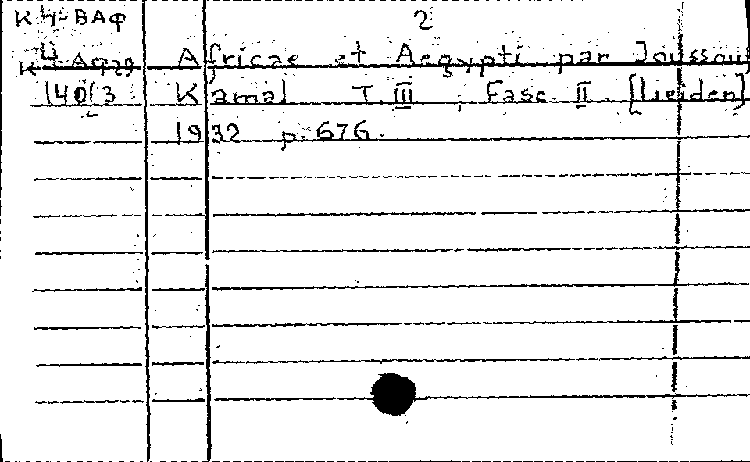 К Ч-ВАФ 2
Africae et Aegypti par Joussouf
14013 Kamal T. III, Fasc. II. [Leiden]
1932 p. 676.